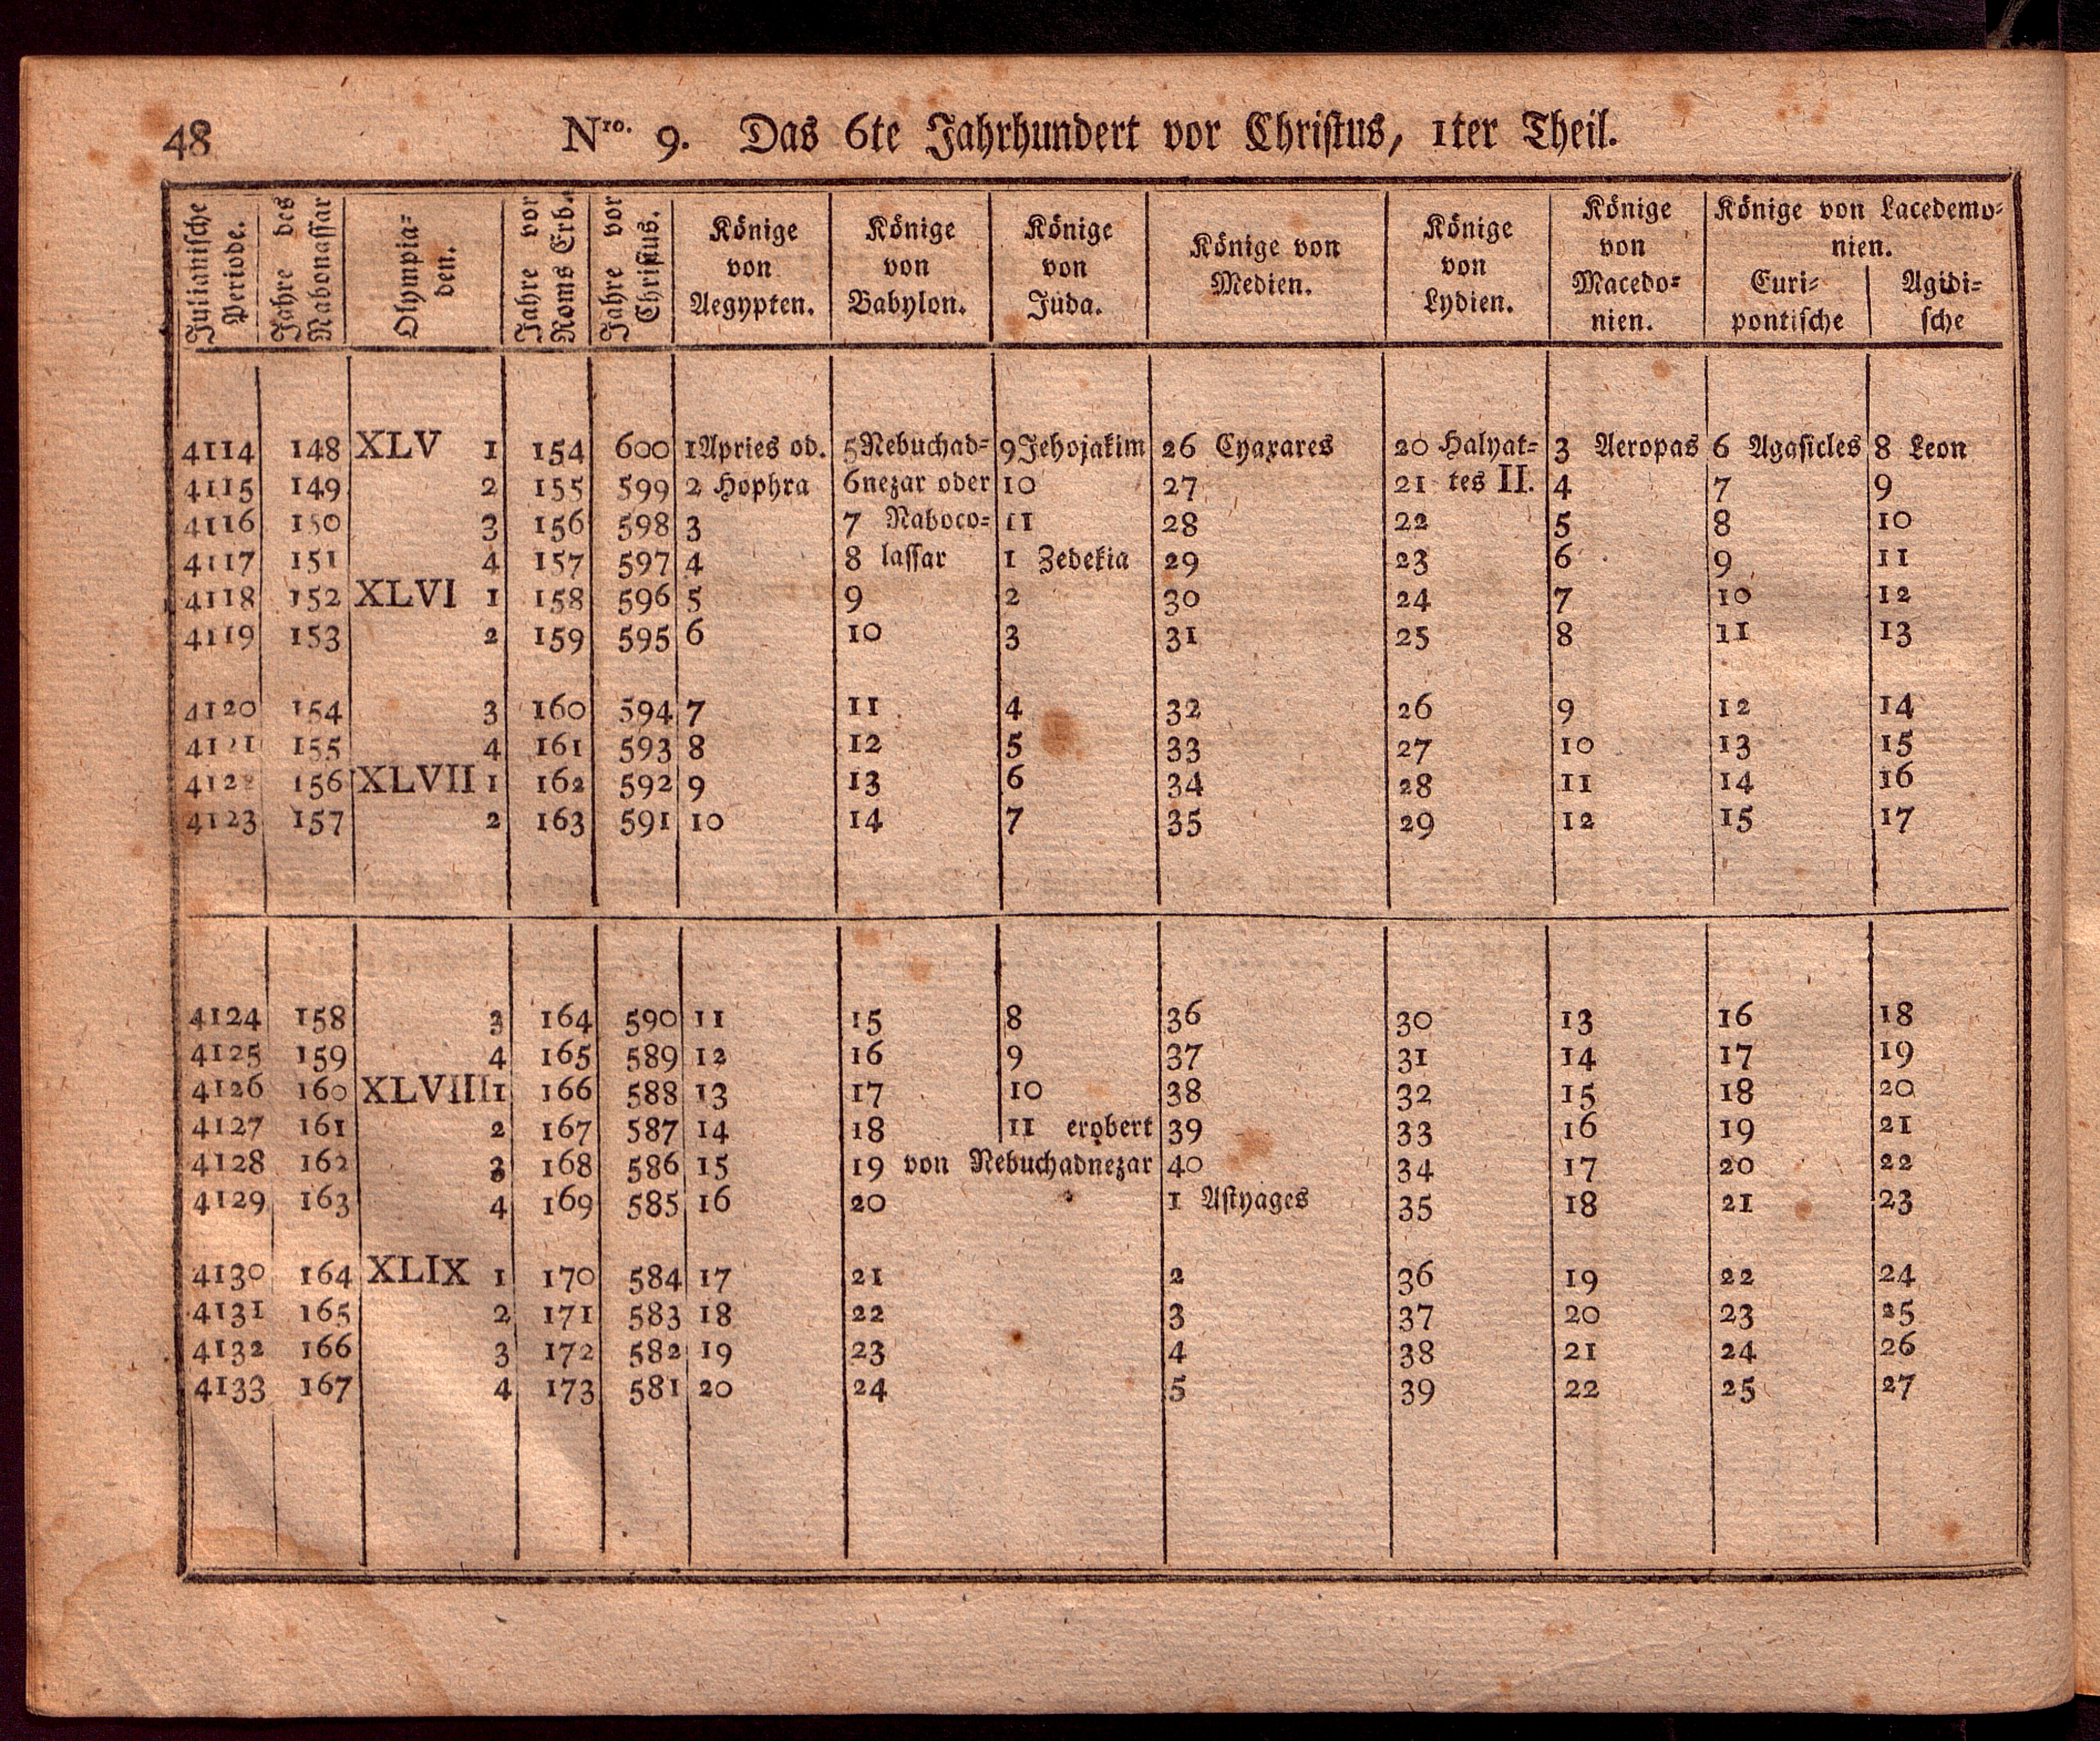 48 Nro. 9. Das 6te Jahrhundert vor Christus, 1ter Theil.
Julianische Periode. | Jahre des Nabonassar | Olympia=den. | Jahre vor Roms Erb. | Jahre vor Christus. | Könige von Aegypten. | Könige von Babylon. | Könige von Juda. | Könige von Medien. | Könige von Lydien. | Könige von Macedo=nien. | Könige von Lacedemo=nien. Euri=pontische | Agidi=sche
4114 148 XLV 1 154 600 1 Apries od. 5 Nebuchad= 9 Jehojakim 26 Cyaxares 20 Halyat= 3 Aeropas 6 Agasicles 8 Leon
4115 149 2 155 599 2 Hophra 6 nezar oder 10 27 21 tes II. 4 7 9
4116 150 3 156 598 3 7 Naboco= 11 28 22 5 8 10
4117 151 4 157 597 4 8 lassar 1 Zedekia 29 23 6 9 11
4118 152 XLVI 1 158 596 5 9 2 30 24 7 10 12
4119 153 2 159 595 6 10 3 31 25 8 11 13
4120 154 3 160 594 7 11 4 32 26 9 12 14
4121 155 4 161 593 8 12 5 33 27 10 13 15
4122 156 XLVII 1 162 592 9 13 6 34 28 11 14 16
4123 157 2 163 591 10 14 7 35 29 12 15 17
4124 158 3 164 590 11 15 8 36 30 13 16 18
4125 159 4 165 589 12 16 9 37 31 14 17 19
4126 160 XLVIII 1 166 588 13 17 10 38 32 15 18 20
4127 161 2 167 587 14 18 11 erobert 39 33 16 19 21
4128 162 3 168 586 15 19 von Nebuchadnezar 40 34 17 20 22
4129 163 4 169 585 16 20 1 Astyages 35 18 21 23
4130 164 XLIX 1 170 584 17 21 2 36 19 22 24
4131 165 2 171 583 18 22 3 37 20 23 25
4132 166 3 172 582 19 23 4 38 21 24 26
4133 167 4 173 581 20 24 5 39 22 25 27